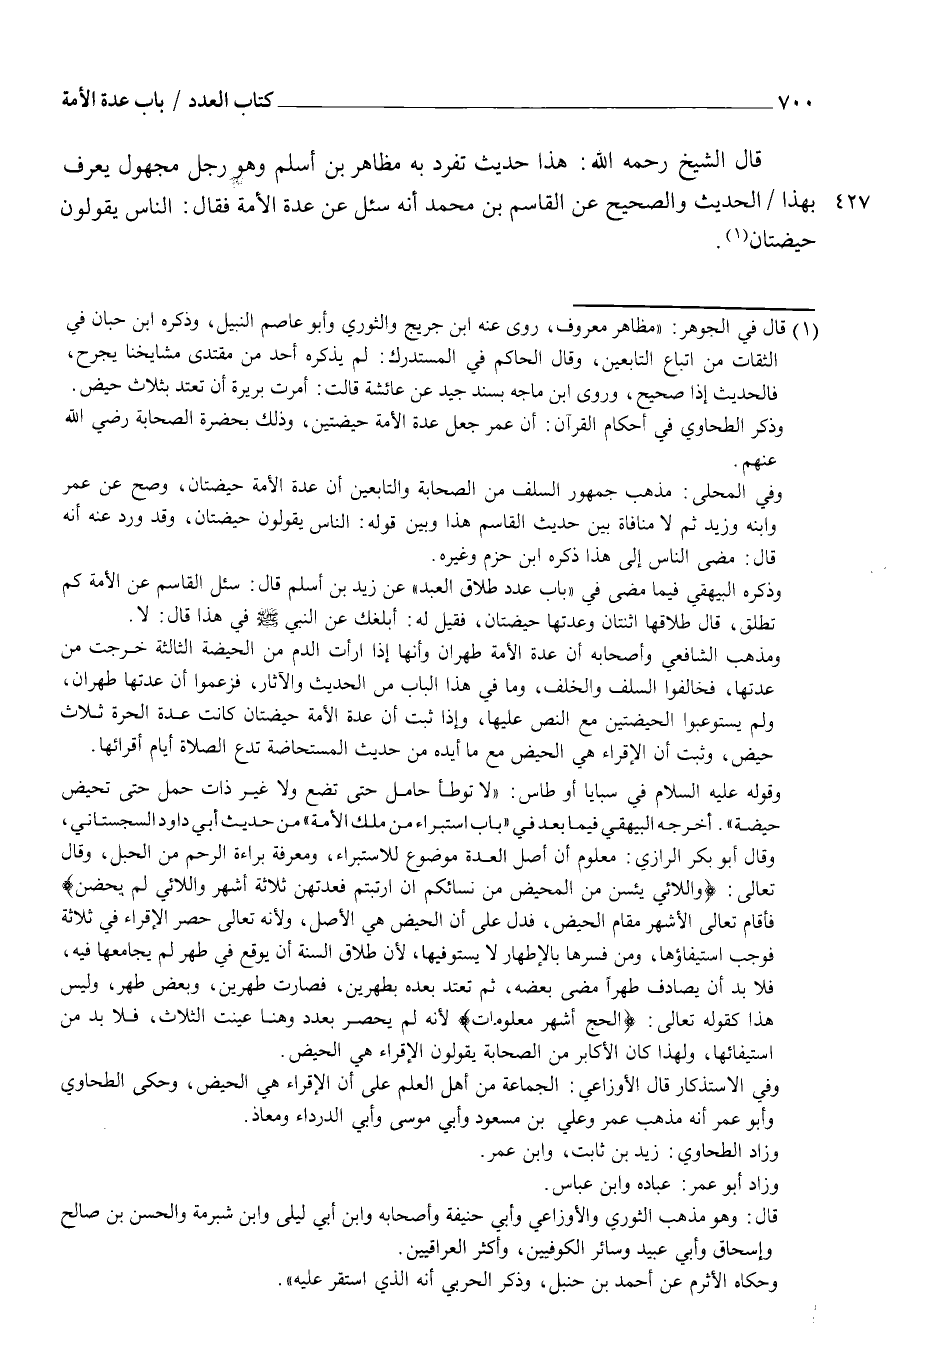 ٧٠٠ كتاب العدد / باب عدة الأمة
قال الشيخ رحمه الله: هذا حديث تفرد به مظاهر بن أسلم وهو رجل مجهول يعرف
٤٢٧ بهذا / الحديث والصحيح عن القاسم بن محمد أنه سئل عن عدة الأمة فقال: الناس يقولون
حيضتان(١).
(١) قال في الجوهر: «مظاهر معروف، روى عنه ابن جريج والثوري وأبو عاصم النبيل، وذكره ابن حبان في
الثقات من اتباع التابعين، وقال الحاكم في المستدرك: لم يذكره أحد من مقتدى مشايخنا بجرح،
فالحديث إذا صحيح، وروى ابن ماجه بسند جيد عن عائشة قالت: أمرت بريرة أن تعتد بثلاث حيض.
وذكر الطحاوي في أحكام القرآن: أن عمر جعل عدة الأمة حيضتين، وذلك بحضرة الصحابة رضي الله
عنهم.
وفي المحلى: مذهب جمهور السلف من الصحابة والتابعين أن عدة الأمة حيضتان، وصح عن عمر
وابنه وزيد ثم لا منافاة بين حديث القاسم هذا وبين قوله: الناس يقولون حيضتان، وقد ورد عنه أنه
قال: مضى الناس إلى هذا ذكره ابن حزم وغيره.
وذكره البيهقي فيما مضى في «باب عدد طلاق العبد» عن زيد بن أسلم قال: سئل القاسم عن الأمة كم
تطلق، قال طلاقها اثنتان وعدتها حيضتان، فقيل له: أبلغك عن النبي ﷺ في هذا قال: لا.
ومذهب الشافعي وأصحابه أن عدة الأمة طهران وأنها إذا ارأت الدم من الحيضة الثالثة خرجت من
عدتها، فخالفوا السلف والخلف، وما في هذا الباب من الحديث والآثار، فزعموا أن عدتها طهران،
ولم يستوعبوا الحيضتين مع النص عليها، وإذا ثبت أن عدة الأمة حيضتان كانت عدة الحرة ثلاث
حيض، وثبت أن الإقراء هي الحيض مع ما أيده من حديث المستحاضة تدع الصلاة أيام أقرائها.
وقوله عليه السلام في سبايا أو طاس: «لا توطأ حامل حتى تضع ولا غير ذات حمل حتى تحيض
حيضة». أخرجه البيهقي فيما بعد في «باب استبراء من ملك الأمة» من حديث أبي داود السجستاني،
وقال أبو بكر الرازي: معلوم أن أصل العدة موضوع للاستبراء، ومعرفة براءة الرحم من الحبل، وقال
تعالى: ﴿واللائي يئسن من المحيض من نسائكم ان ارتبتم فعدتهن ثلاثة أشهر واللائي لم يحضن﴾
فأقام تعالى الأشهر مقام الحيض، فدل على أن الحيض هي الأصل، ولأنه تعالى حصر الإقراء في ثلاثة
فوجب استيفاؤها، ومن فسرها بالإطهار لا يستوفيها، لأن طلاق السنة أن يوقع في طهر لم يجامعها فيه،
فلا بد أن يصادف طهراً مضى بعضه، ثم تعتد بعده بطهرين، فصارت طهرين، وبعض طهر، وليس
هذا كقوله تعالى: ﴿الحج أشهر معلومات﴾ لأنه لم يحصر بعدد وهنا عينت الثلاث، فلا بد من
استيفائها، ولهذا كان الأكابر من الصحابة يقولون الإقراء هي الحيض.
وفي الاستذكار قال الأوزاعي: الجماعة من أهل العلم على أن الإقراء هي الحيض، وحكى الطحاوي
وأبو عمر أنه مذهب عمر وعلي بن مسعود وأبي موسى وأبي الدرداء ومعاذ.
وزاد الطحاوي: زيد بن ثابت، وابن عمر.
وزاد أبو عمر: عباده وابن عباس.
قال: وهو مذهب الثوري والأوزاعي وأبي حنيفة وأصحابه وابن أبي ليلى وابن شبرمة والحسن بن صالح
وإسحاق وأبي عبيد وسائر الكوفيين، وأكثر العراقيين.
وحكاه الأثرم عن أحمد بن حنبل، وذكر الحربي أنه الذي استقر عليه».